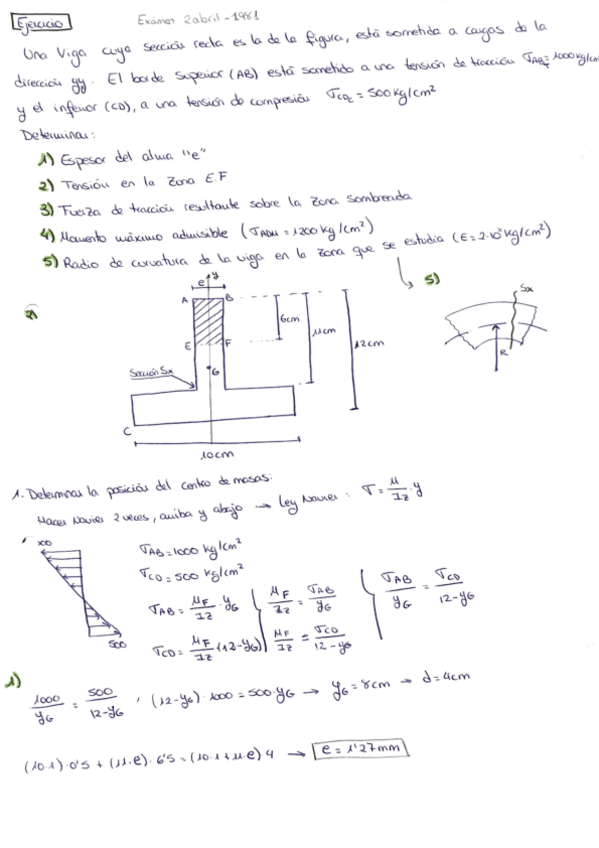 Ejercicio Examen 2 abril - 1981
Una viga cuya sección recta es la de la figura, está sometida a cargas de la
dirección yy. El borde superior (AB) está sometido a una tensión de tracción σAB = 1000 kg/cm
y el inferior (CD), a una tensión de compresión σCD = 500 kg/cm²
Determinar:
1) Espesor del alma "e"
2) Tensión en la zona E.F
3) Fuerza de tracción resultante sobre la zona sombreada
4) Momento máximo admisible (σADM = 1200 kg/cm²)
5) Radio de curvatura de la viga en la zona que se estudia (E = 2·10⁶ kg/cm²)
5)
y
e
Sx
A B
6cm
11cm
12cm
R
E F
Sección Sx
G
C
10cm
1. Determinar la posición del centro de masas:
Hacer Navier 2 veces, arriba y abajo → Ley Navier: σ = M/Iz · y
σAB = 1000 kg/cm²
σCD = 500 kg/cm²
σAB = MF/Iz · yG MF/Iz = σAB/yG σAB/yG = σCD/12-yG
σCD = MF/Iz (12-yG) MF/Iz = σCD/12-yG
500
1)
1000/yG = 500/12-yG , (12-yG)·1000 = 500·yG → yG = 8cm → d = 4cm
(10·1)·0'5 + (11·e)·6'5 = (10·1+11·e)4 → e = 1'27mm